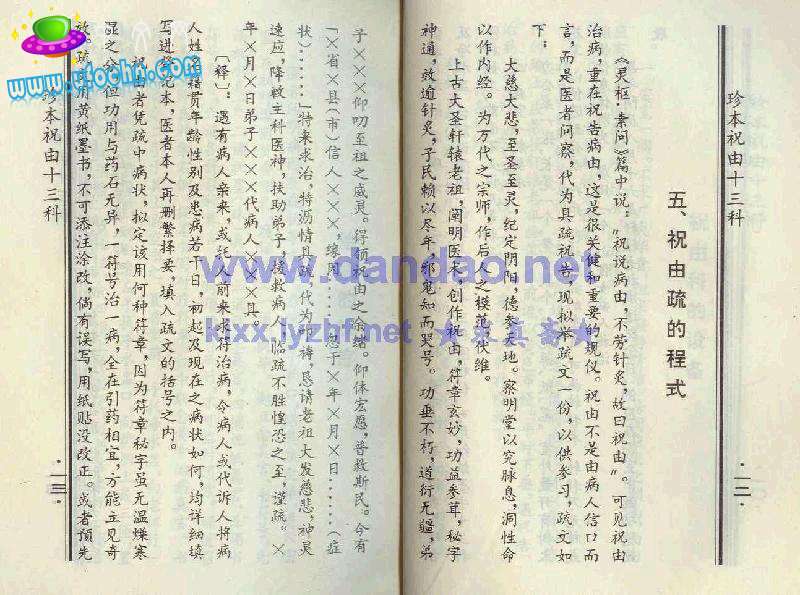 珍本祝由十三科
五、祝由疏的程式
《灵枢·素问》篇中说："祝说病由,不劳针灸,故曰祝由"。可见祝由
治病,重在祝告病由,这是很关健和重要的规仪。祝由不是由病人信口而
言,而是医者问察,代为具疏祝告,现拟举疏文一份,以供参习,疏文如
下:
大慈大悲,至圣至灵,纪定阴阳,德参天地。察明堂以究脉息,洞性命
以作内经。为万代之宗师,作后人之模范,伏维。
上古大圣轩辕老祖,阐明医术,创作祝由,符章玄妙,功益参茸,秘字
神通,效逾针灸,子民赖以尽年,邪鬼知而哭号。功垂不朽,道衍无疆,弟
一二
子×××仰叨至祖之威灵。得领祝由之余绪。仰体宏愿,普救斯民。今有
「×省×县(市)信人×××,缘用......忽于×年×月×日......(症
状)......」特来求治,特沥情具疏,代为叩祷,恳请老祖大发慈悲,神灵
速应,降敕主科医神,扶助弟子,拯救病人,临疏不胜惶恐之至,谨疏。×
年×月×日弟子×××代病人×××具
〔释〕:遇有病人亲来,或托人前来求符治病,令病人或代诉人将病
人姓名籍贯年龄性别及患病若干日,初起及现在之病状如何,均详细填
写进登记本,医者本人再删繁择要,填入疏文的括号之内。
祝由者凭疏中病状,拟定该用何种符章,因为符章秘字虽无温燥寒
湿之分,但功用与药石无异,一符号治一病,全在引药相宜,方能立见奇
效。疏用黄纸墨书,不可添注涂改,倘有误写,用纸贴没改正。或者预先
珍本祝由十三科
一三
www.dandao.net
kfxx.lyzhf.net ★文真斋★
www.qtochn.com